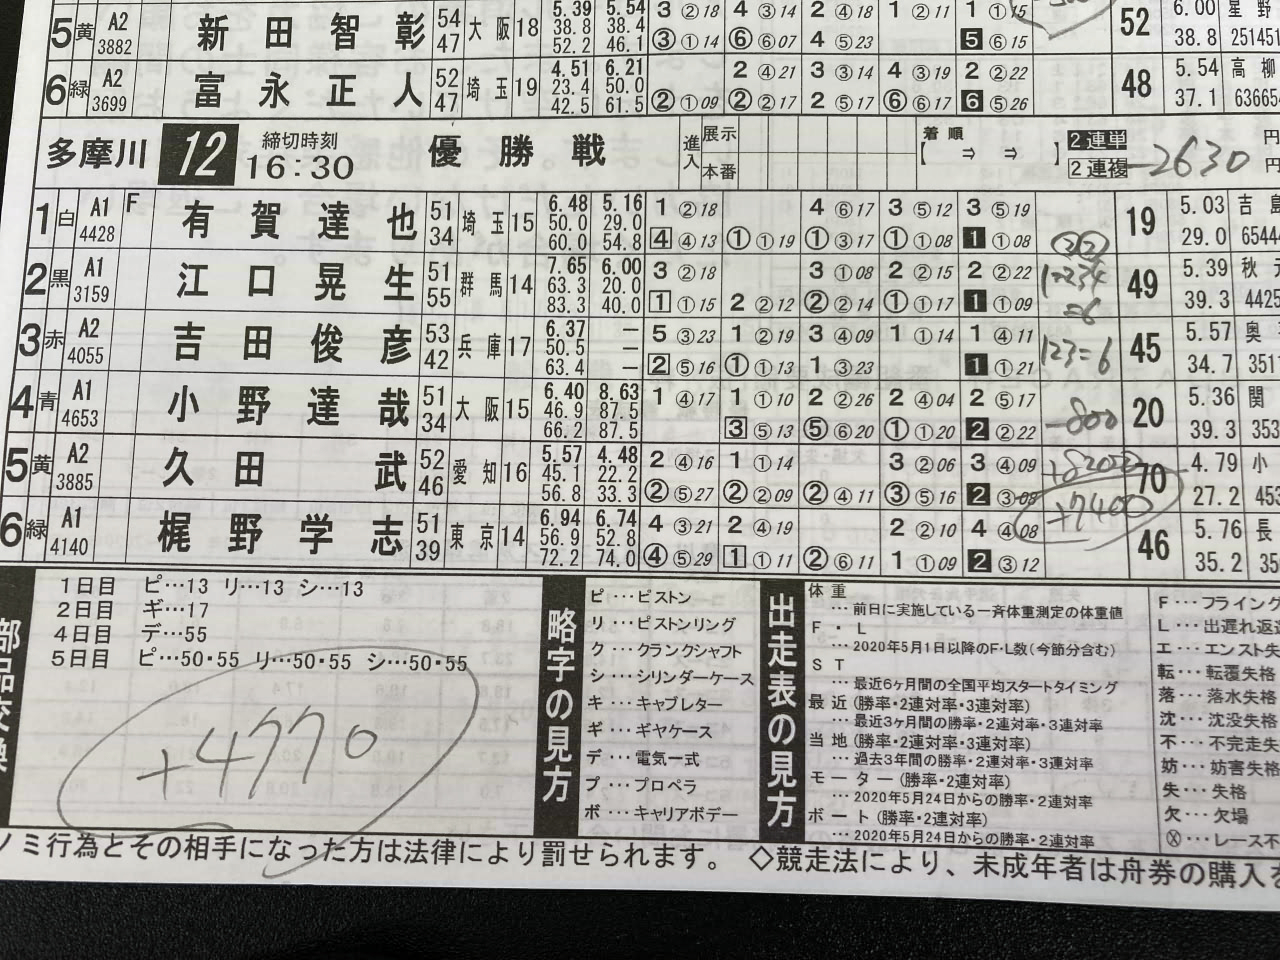 5 黄 A2 3882 新田智彰 54 47 大阪 18 5.39 38.8 52.2 5.54 38.4 46.1 3②18 ③①14 4③14 ⑥⑥07 2④18 4⑤23 1②11 1①15 5⑥15 52 6.00 38.8 星野 251451
6 緑 A2 3699 富永正人 52 47 埼玉 19 4.51 23.4 42.5 6.21 50.0 61.5 ②①09 2④21 ②②17 3③14 2⑤17 4③19 ⑥⑥17 2②22 6⑤26 48 5.54 37.1 高柳 636654
多摩川 12 締切時刻 16:30 優勝戦 進入 展示 本番 着順 【 ⇒ ⇒ 】 2連単 円 2連複 円
-2630
1 白 A1 4428 F 有賀達也 51 34 埼玉 15 6.48 50.0 60.0 5.16 29.0 54.8 1②18 4④13 ①①19 4⑥17 ①③17 3⑤12 ①①08 3⑤19 1①08 19 5.03 29.0 吉島 65444
2 黒 A1 3159 江口晃生 51 55 群馬 14 7.65 63.3 83.3 6.00 20.0 40.0 3②18 1①15 2②12 3①08 ②②14 2②15 ①①17 2②22 1①09 49 5.39 39.3 秋元 4425
3 赤 A2 4055 吉田俊彦 53 42 兵庫 17 6.37 50.5 63.4 — — 5③23 2⑤16 1②19 ①①13 3④09 1③23 1①14 1④11 1①21 45 5.57 34.7 奥 3517
123=6
4 青 A1 4653 小野達哉 51 34 大阪 15 6.40 46.9 66.2 8.63 87.5 87.5 1④17 1①10 3⑤13 2②26 ⑤⑥20 2④04 ①①20 2⑤17 2②22 20 5.36 39.3 関 353
-800
5 黄 A2 3885 久田武 52 46 愛知 16 5.57 45.1 56.8 4.48 22.2 33.3 2④16 ②⑤27 1①14 ②②09 ②④11 3②06 ③⑤16 3④09 2③09 70 4.79 27.2 小 453
+8200
+7400
6 緑 A1 4140 梶野学志 51 39 東京 14 6.94 56.9 72.2 6.74 52.8 74.0 4③21 ④⑤29 2④19 1①11 ②⑥11 2②10 1①09 4④08 2③12 46 5.76 35.2 長
部品交換
1日目 ピ…13 リ…13 シ…13
2日目 ギ…17
4日目 デ…55
5日目 ピ…50・55 リ…50・55 シ…50・55
+4770
略字の見方
ピ…ピストン
リ…ピストンリング
ク…クランクシャフト
シ…シリンダーケース
キ…キャブレター
ギ…ギヤケース
デ…電気一式
プ…プロペラ
ボ…キャリアボデー
出走表の見方
体重
…前日に実施している一斉体重測定の体重値
F・L
…2020年5月1日以降のF・L数(今節分含む)
ST
…最近6ヶ月間の全国平均スタートタイミング
最近(勝率・2連対率・3連対率)
…最近3ヶ月間の勝率・2連対率・3連対率
当地(勝率・2連対率・3連対率)
…過去3年間の勝率・2連対率・3連対率
モーター(勝率・2連対率)
…2020年5月24日からの勝率・2連対率
ボート(勝率・2連対率)
…2020年5月24日からの勝率・2連対率
F…フライング
L…出遅れ返還
エ…エンスト失
転…転覆失格
落…落水失格
沈…沈没失格
不…不完走失
妨…妨害失格
失…失格
欠…欠場
Ⓧ…レース不
ノミ行為とその相手になった方は法律により罰せられます。 ◇競走法により、未成年者は舟券の購入を